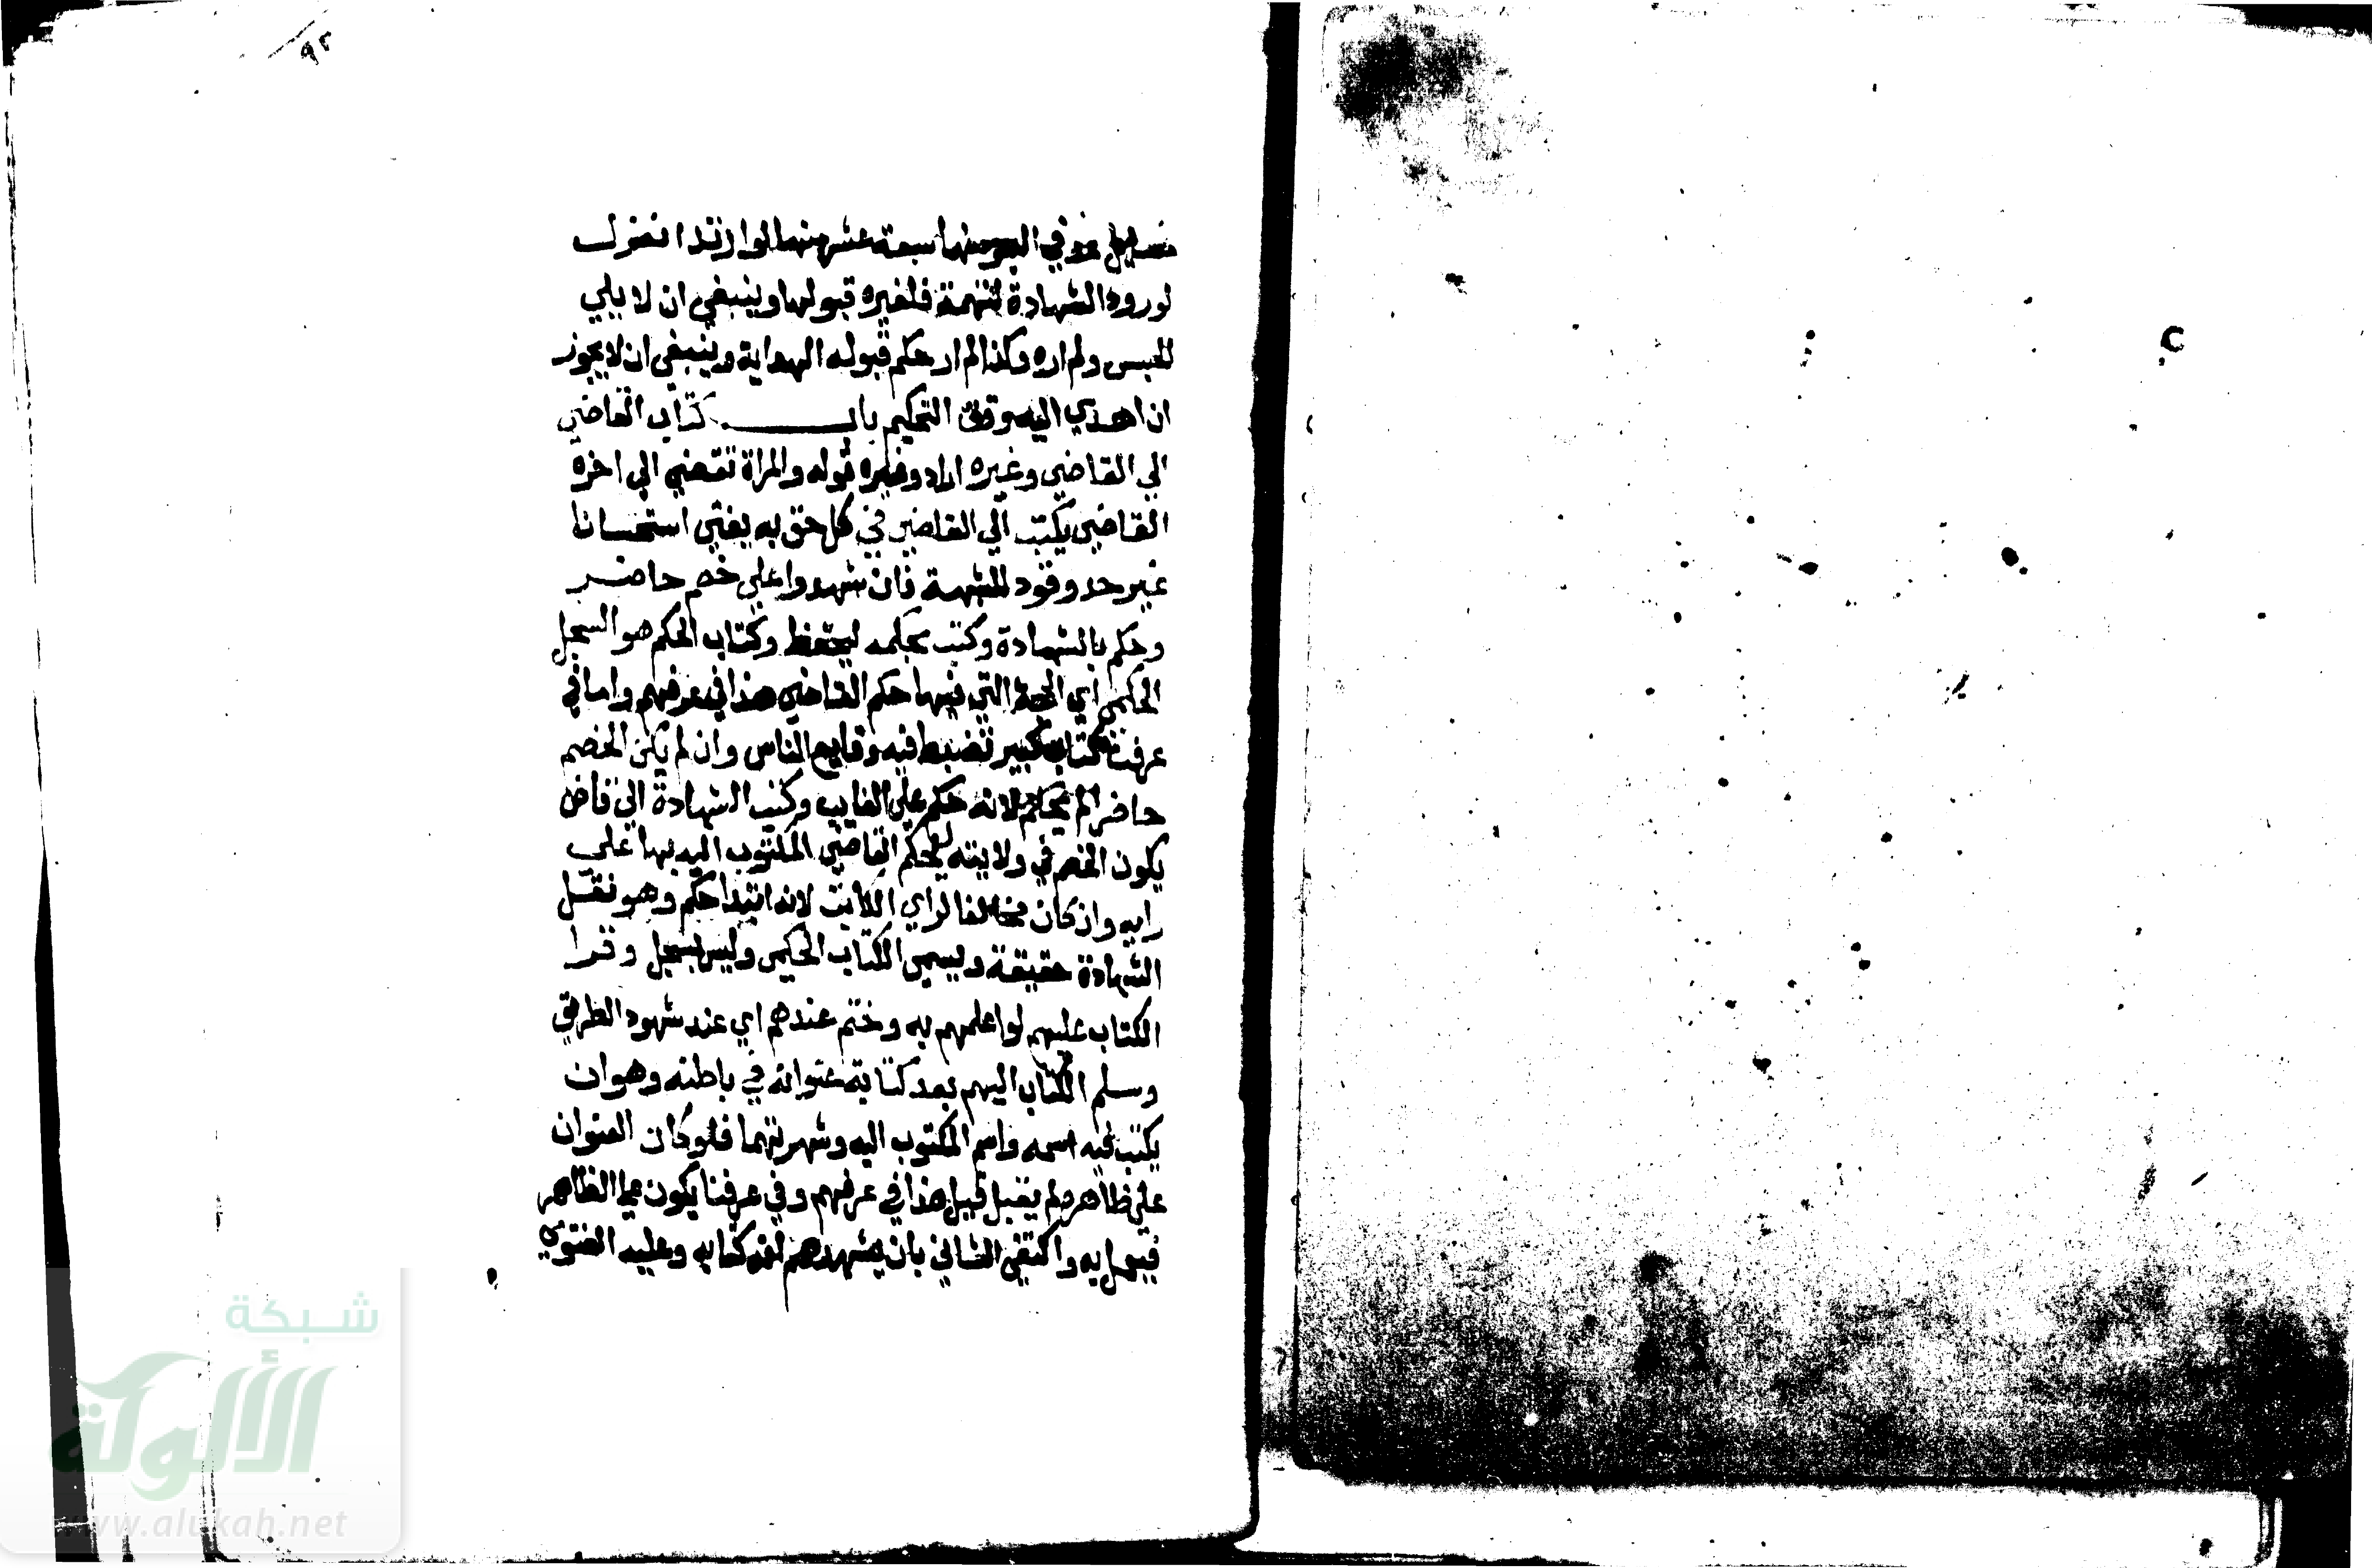 ٩٢
مسايل عد في البحر منها سبعة عشر منها لو ارتدا انعزل
لو رد الشهادة لتهمة فلغيره قبولها وينبغي ان لا يلي
للحبس ولم اره وكذا لم ار حكم قبوله الهداية وينبغي ان لا يجوز
ان اهدي اليه وقت التحكيم باب كتاب القاضي
الي القاضي وغيره اراد وغيره قوله والمراة تقضي الي اخره
القاضي يكتب الي القاضي في كل حق به يفتي استحسانا
غير حد وقود للشبهة فان شهدوا علي خصم حاضر
وحكم بالشهادة وكتب بحكمه ليحفظ وكتاب الحكم هو السجل
الحكمي اي الحجة التي فيها حكم القاضي هذا في عرفهم واما في
عرفنا كتاب كبير تضبط فيه وقايع الناس وان لم يكن الخصم
حاضرا لم يحكم لانه حكم علي الغايب وكتب الشهادة الي قاض
يكون الخصم في ولايته ليحكم القاضي المكتوب اليه بها علي
رايه وان كان مخالفا لراي الكاتب لانه ابتدا حكم وهو نقل
الشهادة حقيقة ويسمي الكتاب الحكمي وليس بسجل وقرا
الكتاب عليهم لو اعلمهم به وختم عندهم اي عند شهود الطريق
وسلم الكتاب اليهم بعد كتابة عنوانه في باطنه وهو ان
يكتب فيه اسمه واسم المكتوب اليه وشهرتهما فلو كان العنوان
علي ظاهره لم يقبل قيل هذا في عرفهم وفي عرفنا يكون علي الظاهر
فيعمل به واكتفي الثاني بان يشهدهم انه كتابه وعليه الفتوي
شبكة
الألوكة
www.alukah.net